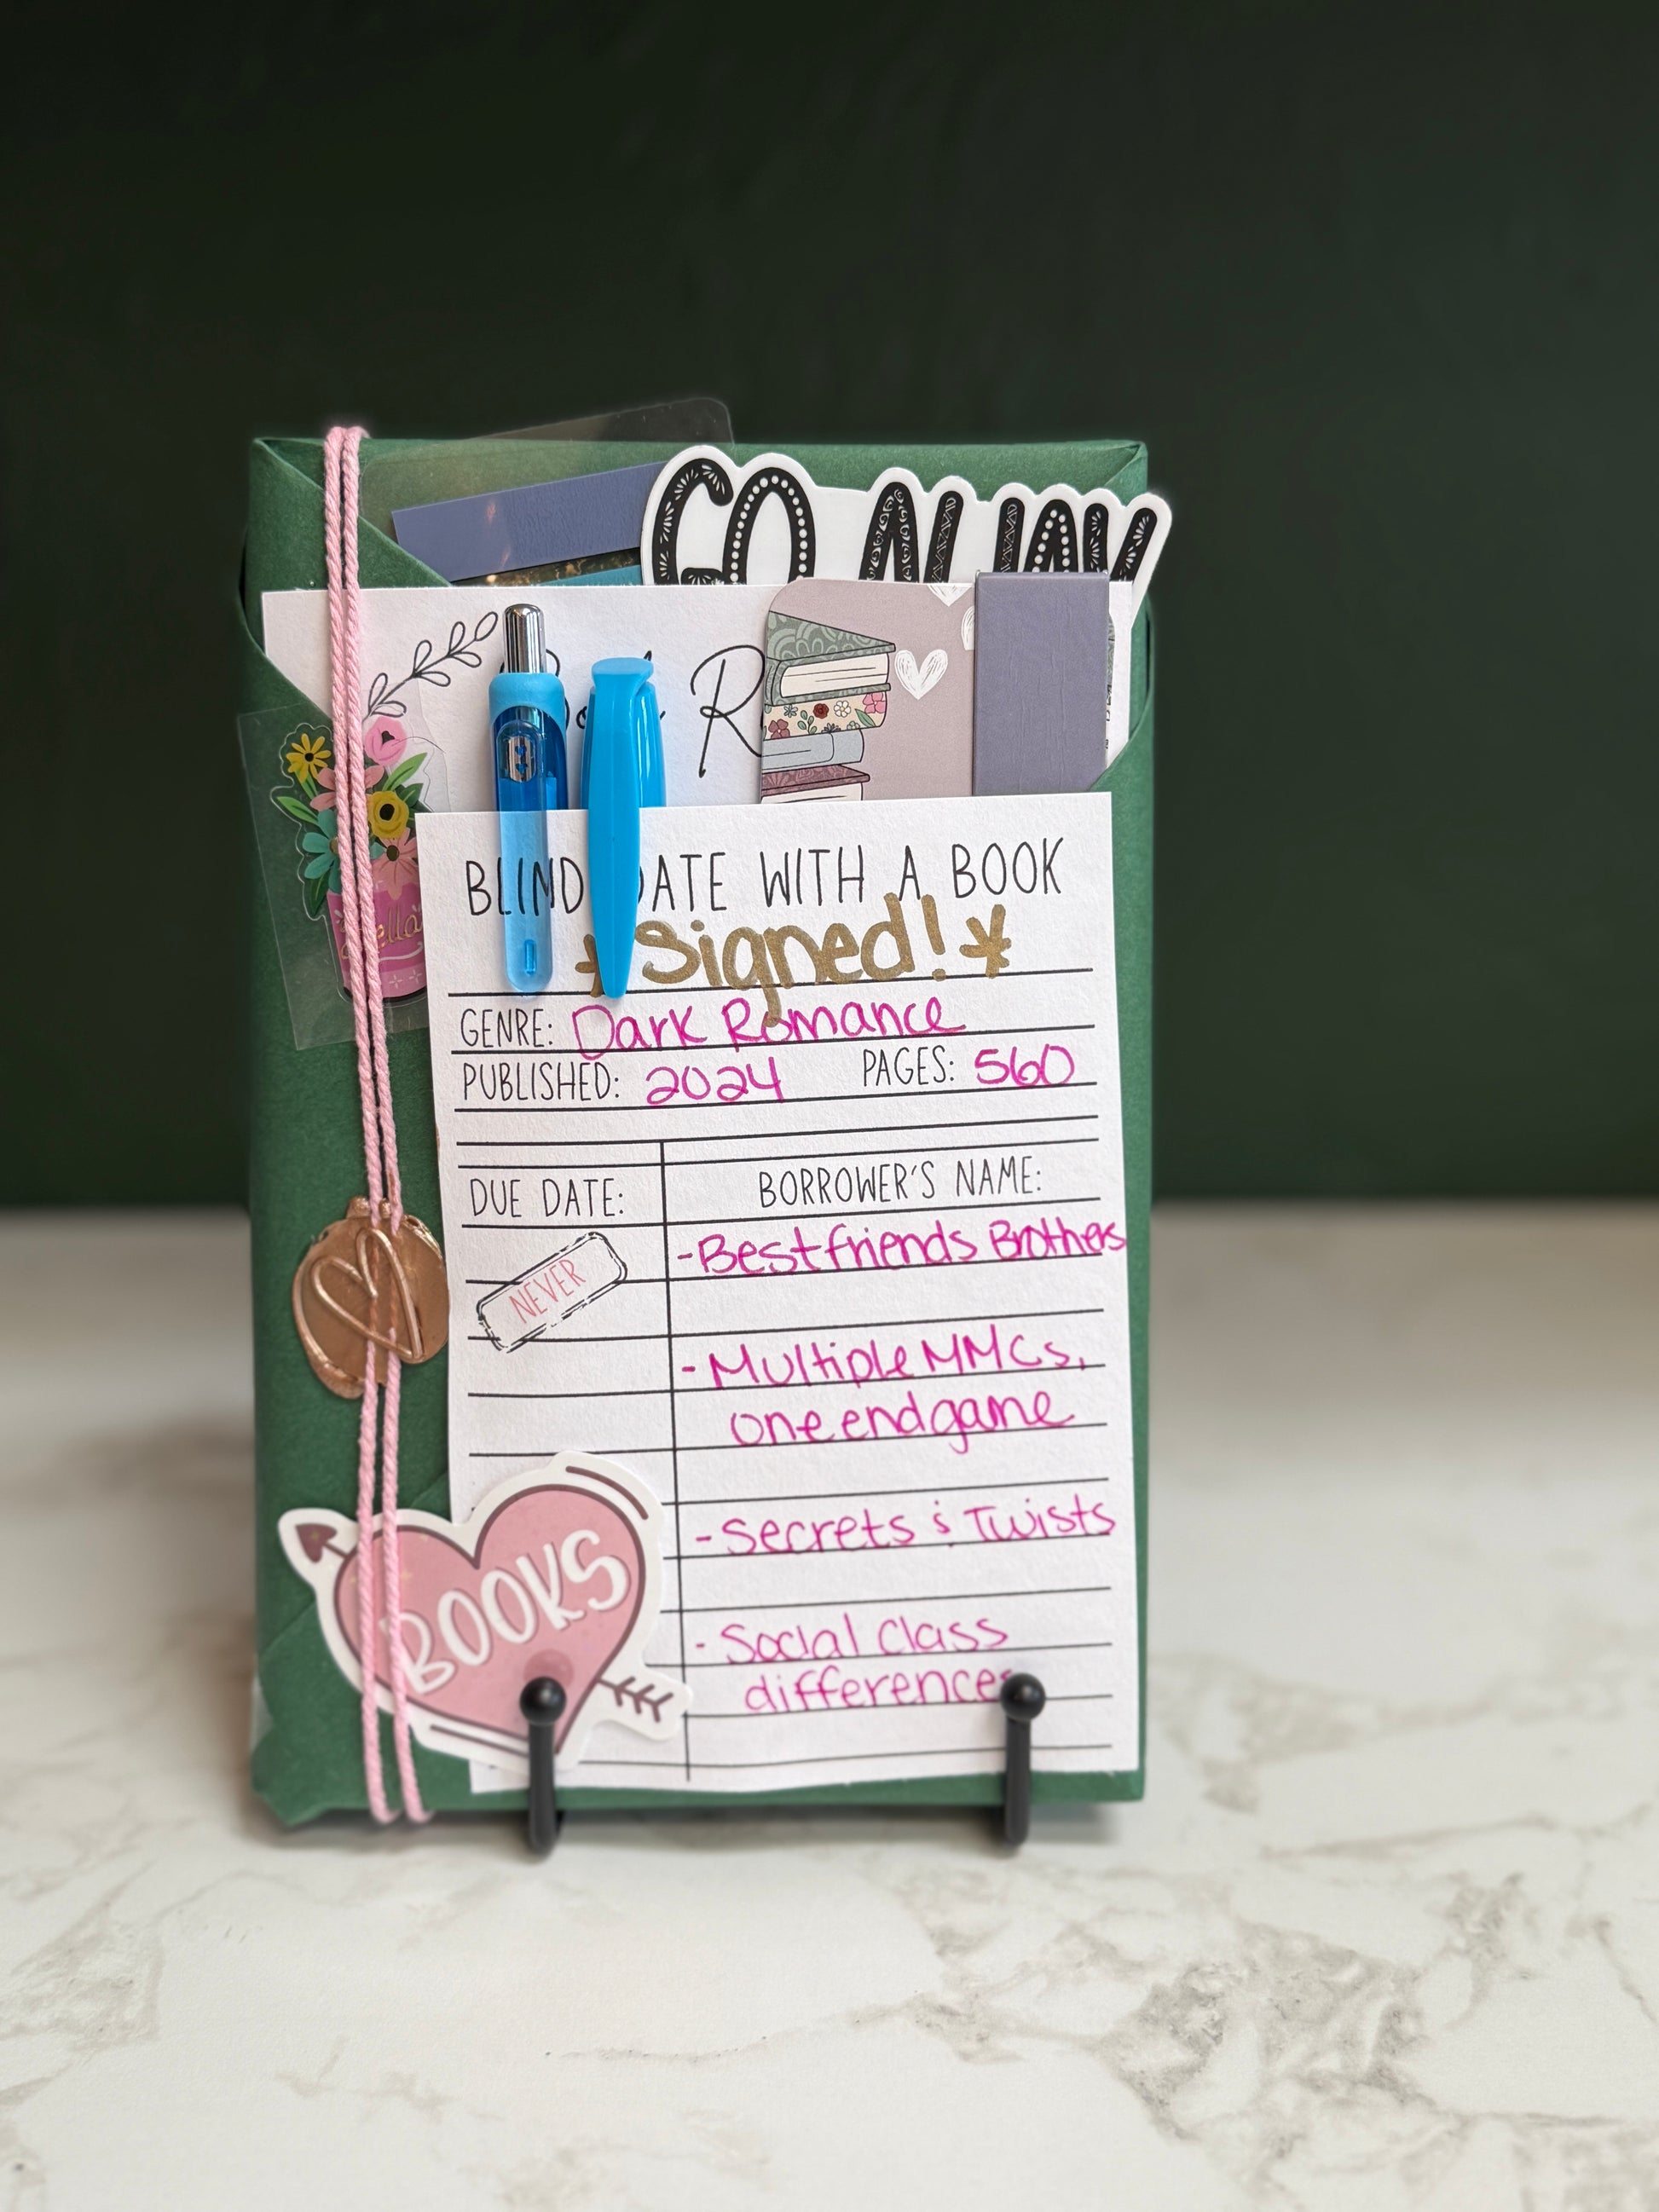 GO AWAY
BLIND DATE WITH A BOOK
* Signed! *
GENRE: Dark Romance
PUBLISHED: 2024 PAGES: 560
DUE DATE: BORROWER'S NAME:
NEVER
- Bestfriends Brothers
- Multiple MMCs,
one endgame
- Secrets & Twists
- Social Class
differences
BOOKS